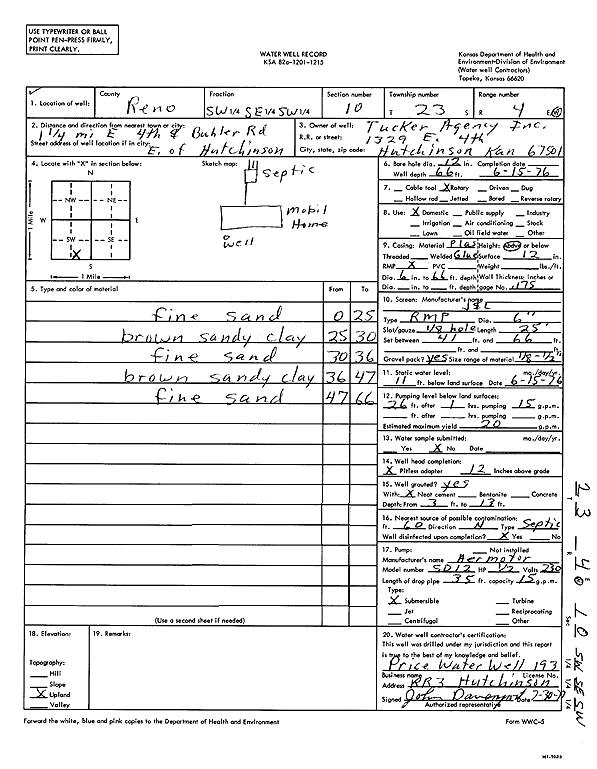 USE TYPEWRITER OR BALL
POINT PEN-PRESS FIRMLY,
PRINT CLEARLY.
WATER WELL RECORD
KSA 82a-1201-1215
Kansas Department of Health and
Environment-Division of Environment
(Water well Contractors)
Topeka, Kansas 66620
1. Location of well: County Reno Fraction SW 1/4 SE 1/4 SW 1/4 Section number 10 Township number T 23 S Range number R 4 E/W
2. Distance and direction from nearest town or city: 1 1/4 mi E 4th & Buhler Rd
Street address of well location if in city: E. of Hutchinson
3. Owner of well: Tucker Agency Inc.
R.R. or street: 1329 E. 4th
City, state, zip code: Hutchinson Kan 67501
4. Locate with "X" in section below:
N
NW NE
W E
SW SE
X
S
1 Mile
1 Mile
Sketch map:
Septic
mobil
Home
well
5. Type and color of material From To
fine sand 0 25
brown sandy clay 25 30
fine sand 30 36
brown sandy clay 36 47
fine sand 47 66
(Use a second sheet if needed)
6. Bore hole dia. 12 in. Completion date
Well depth 66 ft. 6-15-76
7. Cable tool X Rotary Driven Dug
Hollow rod Jetted Bored Reverse rotary
8. Use: X Domestic Public supply Industry
Irrigation Air conditioning Stock
Lawn Oil field water Other
9. Casing: Material Plas Height: Above or below
Threaded Welded Glue Surface 12 in.
RMP X PVC Weight lbs./ft.
Dia. 6 in. to 66 ft. depth Wall Thickness: inches or
Dia. in. to ft. depth gage No. .175
10. Screen: Manufacturer's name
Type RMP Dia. 6"
Slot/gauze 1/8 hole Length 25'
Set between 41 ft. and 66 ft.
ft. and ft.
Gravel pack? yes Size range of material 1/8-1/2"
11. Static water level: mo./day/yr.
11 ft. below land surface Date 6-15-76
12. Pumping level below land surfaces:
26 ft. after 1 hrs. pumping 15 g.p.m.
ft. after hrs. pumping g.p.m.
Estimated maximum yield 20 g.p.m.
13. Water sample submitted: mo./day/yr.
Yes X No Date
14. Well head completion:
X Pitless adapter 12 Inches above grade
15. Well grouted? yes
With: X Neat cement Bentonite Concrete
Depth: From 3 ft. to 13 ft.
16. Nearest source of possible contamination:
ft. 60 Direction N Type Septic
Well disinfected upon completion? X Yes No
17. Pump: Not installed
Manufacturer's name Aermotor
Model number SD12 HP 1/2 Volts 230
Length of drop pipe 35 ft. capacity 15 g.p.m.
Type:
X Submersible Turbine
Jet Reciprocating
Centrifugal Other
18. Elevation:
Topography:
Hill
Slope
X Upland
Valley
19. Remarks:
20. Water well contractor's certification:
This well was drilled under my jurisdiction and this report
is true to the best of my knowledge and belief.
Price Water Well 193
Business name License No.
Address RR3 Hutchinson
Signed John Davenport Date
Authorized representative
T 23 R 4 E Sec 10 SW SE SW
1/4 1/4 1/4
Forward the white, blue and pink copies to the Department of Health and Environment
Form WWC-5